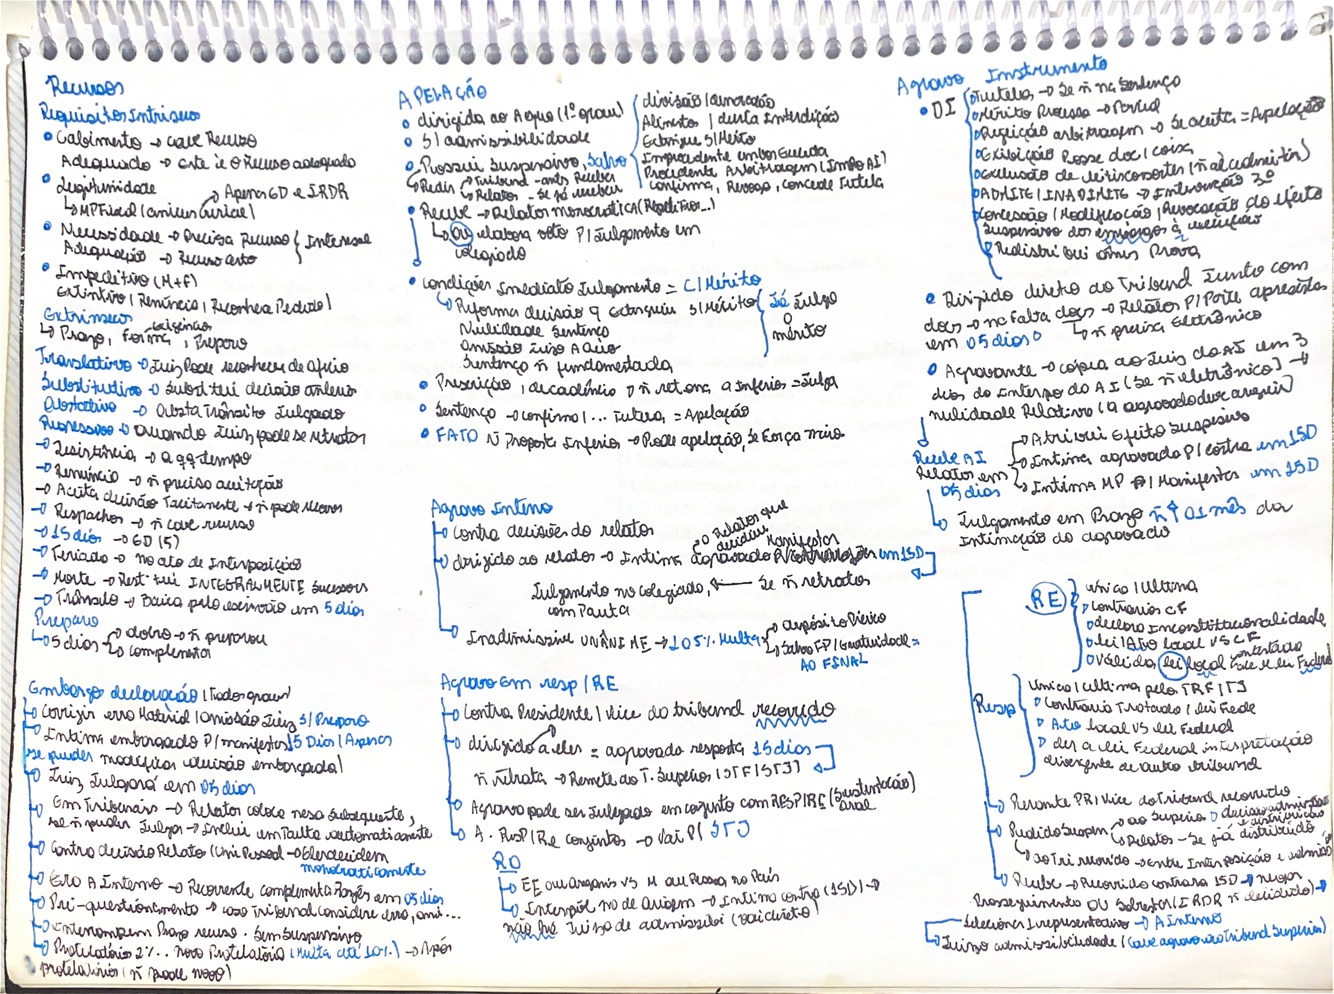 Recursos
Requisitos Intrínsecos
Cabimento → cabe Recurso
Adequado → este é o Recurso adequado
Legitimidade
→ Apenas ED e IRDR
↳ MP Fiscal (amicus curiae)
Necessidade → Precisa Recurso
Adequação → Recurso certo
} Interesse
Impeditivo (M+F)
Extintivo | Renúncia | Reconhece Pedido)
Extrínsecos
↳ Prazo, Forma, Preparo
Translativo → Juiz Pode reconhecer de ofício
Substitutivo → Substitui decisão anterior
Obstativo → Obsta Trânsito Julgado
Regressivo → Quando Juiz pode se retratar
→ Desistência → a qq tempo
→ Renúncia → ñ precisa aceitação
→ Aceita decisão Tacitamente → ñ pode
→ Despachos → ñ cabe recurso
→ 15 dias → ED (5)
→ Feriado → no ato de Interposição
→ Morte → Restitui INTEGRALMENTE Sucessor
→ Trânsito → Baixa pelo escrivão em 5 dias
Preparo
↳ 5 dias
→ dobro → ñ preparou
↳ complementa
Embargo declaração (Todos graus)
Corrigir erro Material | omissão Juiz S/ Preparo
Intima embargado P/ manifestar 5 Dias (Apenas
se puder modificar decisão embargada)
Juiz Julgará em 05 dias
Em Tribunais → Relator coloca mesa subsequente,
se ñ puder Julgar → Inclui em Pauta automaticamente
Contra decisão Relator (Uni Pessoal → decidem
monocraticamente
Era A Interno → Recorrente, complementa Razões em 05 dias
Pré-questionamento → caso Tribunal considere erro, omi...
Interrompem Prazo recurso. Sem Suspensivo
Protelatórios 2%.. novo Protelatório (Multa até 10%) → Após
protelatórios (ñ pode novo)
APELAÇÃO
dirigida ao A quo (1º grau)
S/ admissibilidade
Possui Suspensivo, Salvo
{ divisão | demarcação
Alimentos | decreta Interdição
Extingue S/ Mérito
Improcedente embar Executa
Procedente Arbitragem
Confirma, Revoga, Concede Tutela
→ Tribunal - antes Receber
↳ Relator - Se já receber
Recebe → Relator monocrática
↳ OU elabora voto P/ Julgamento em
colegiado
condições Imediato Julgamento = C/ Mérito
↳ Reforma decisão q Extinguiu S/ Mérito
Nulidade Sentença
Omissão Juízo A quo
Sentença ñ fundamentada
} Já Julga
o
mérito
Prescrição, decadência ñ retorna a Inferior = Julga
Sentença → confirma | ... Tutela, = Apelação
FATO ñ Proposta Inferior → Pode apelação, Se Força maior
Agravo Interno
contra decisões do relator
→ Relator que
decidiu
dirigido ao relator → Intima agravado P/ Manifestar em 15D
Julgamento no colegiado, ← Se ñ retratar
com Pauta
Inadmissível UNÂNIME → 1 a 5% Multa
→ depósito Prévio
↳ Salvo FP / Gratuidade =
AO FINAL
Agravo Em resp / RE
Contra Presidente / Vice do tribunal recorrido
dirigido a eles = agravado resposta 15 dias
ñ retrata → Remete ao T. Superior (STF|STJ)
Agravo pode ser Julgado em conjunto com RESP/RE (Sustentação)
oral
A. Resp/Re conjuntos → Vai P/ STJ
RO
EE ou organis VS M ou Pessoa no País
Interpõe no de Origem → Intima contra (15D) →
não há Juízo de admissibili (vai direto)
Agravo Instrumento
DI
Tutelas → Se ñ na Sentença
Mérito Processo → Parcial
Rejeição arbitragem → Se aceita = Apelação
Exibição Posse doc | coisa
Exclusão de litisconsortes
ADMITE | INADMITE → Intervenção 3º
Concessão | Modificação | Revogação do efeito
Suspensivo dos embargos à execução
Redistribui ônus Prova
Dirigido direto ao Tribunal Junto com
docs → na Falta docs → Relator P/ Parte apresentar
em 05 dias
↳ ñ precisa Eletrônico
Agravante → cópia ao Juiz do AI em 3
dias do Interpo do AI (Se ñ eletrônico) →
nulidade Relativa (a agravado deve arguir)
Recebe AI
Relator em
05 dias
→ Atribui Efeito Suspensivo
→ Intima agravado P/ contra em 15D
↳ Intima MP P/ Manifestar em 15D
Julgamento em Prazo ñ ↑ 01 mês da
Intimação do agravado
RE
única | última
contraria CF
declara Inconstitucionalidade
lei | Ato local VS CF
válida lei local contestado face lei Federal
Resp
única | última pelo TRF | TJ
Contraria Tratado | lei Fede
Ato local VS lei Federal
der a lei Federal interpretação
divergente de outro tribunal
Perante PR | Vice do Tribunal recorrido
Pedido Suspen
→ ao Superior → decisão admissão e distribuição
↳ Relator - Se já distribuído
↳ ao Tri recorrido → entre Interposição e
Recebe → Recorrido contrara 15D → negar
Prosseguimento OU Sobrestar (IRDR ñ decidido) →
Seleciona representativo → A Interno
Juízo admissibilidade (cabe agravo ao Tribunal Superior)